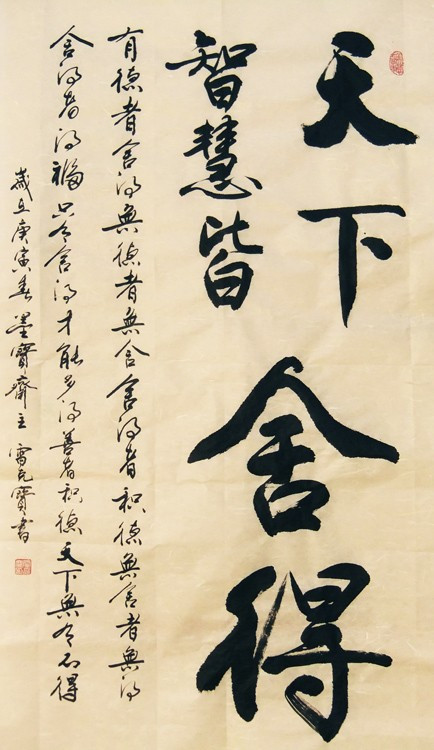 天下舍得
智慧皆
有德者舍得無德者無舍舍得者积德無舍者無得
舍得者得福只舍得才能多得善者积德天下無不得
歲在庚寅春墨寶齋主雷克寶書